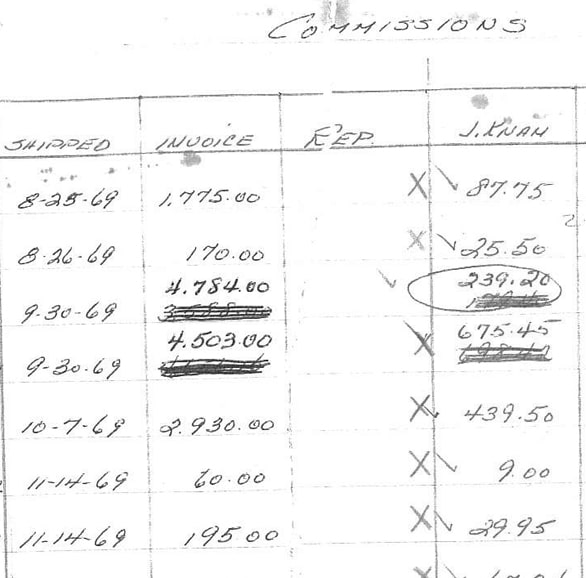 COMMISSIONS
SHIPPED INVOICE REP. J. KNAM
8-25-69 1,775.00 X ✓ 87.75
8-26-69 170.00 X ✓ 25.50
4.784.00 ✓ 239.20
9-30-69
4.503.00 X 675.45
9-30-69
10-7-69 2.930.00 X ✓ 439.50
11-14-69 60.00 X ✓ 9.00
11-14-69 195.00 X ✓ 29.95